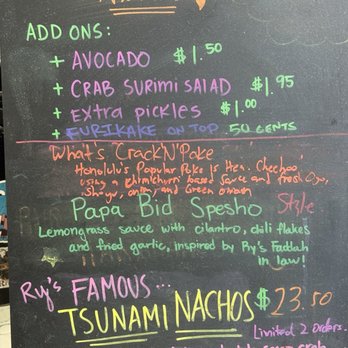 ADD ONS:
+ AVOCADO $1.50
+ CRAB SURIMI SALAD $1.95
+ Extra pickles $1.00
+ FURIKAKE ON TOP .50 CENTS
What's Crack'N'Poke
Honolulu's Popular Poke Is Hea. Cheehoo
using a chimichurri based sauce and fresh
Shoyu, onion, and Green onion
Papa Bid Spesho Style
Lemongrass sauce with cilantro, chili flakes
and fried garlic, inspired by Ry's Faddah
in law!
Ry's FAMOUS...
TSUNAMI NACHOS $23.50
Limited 2 Orders.
crab